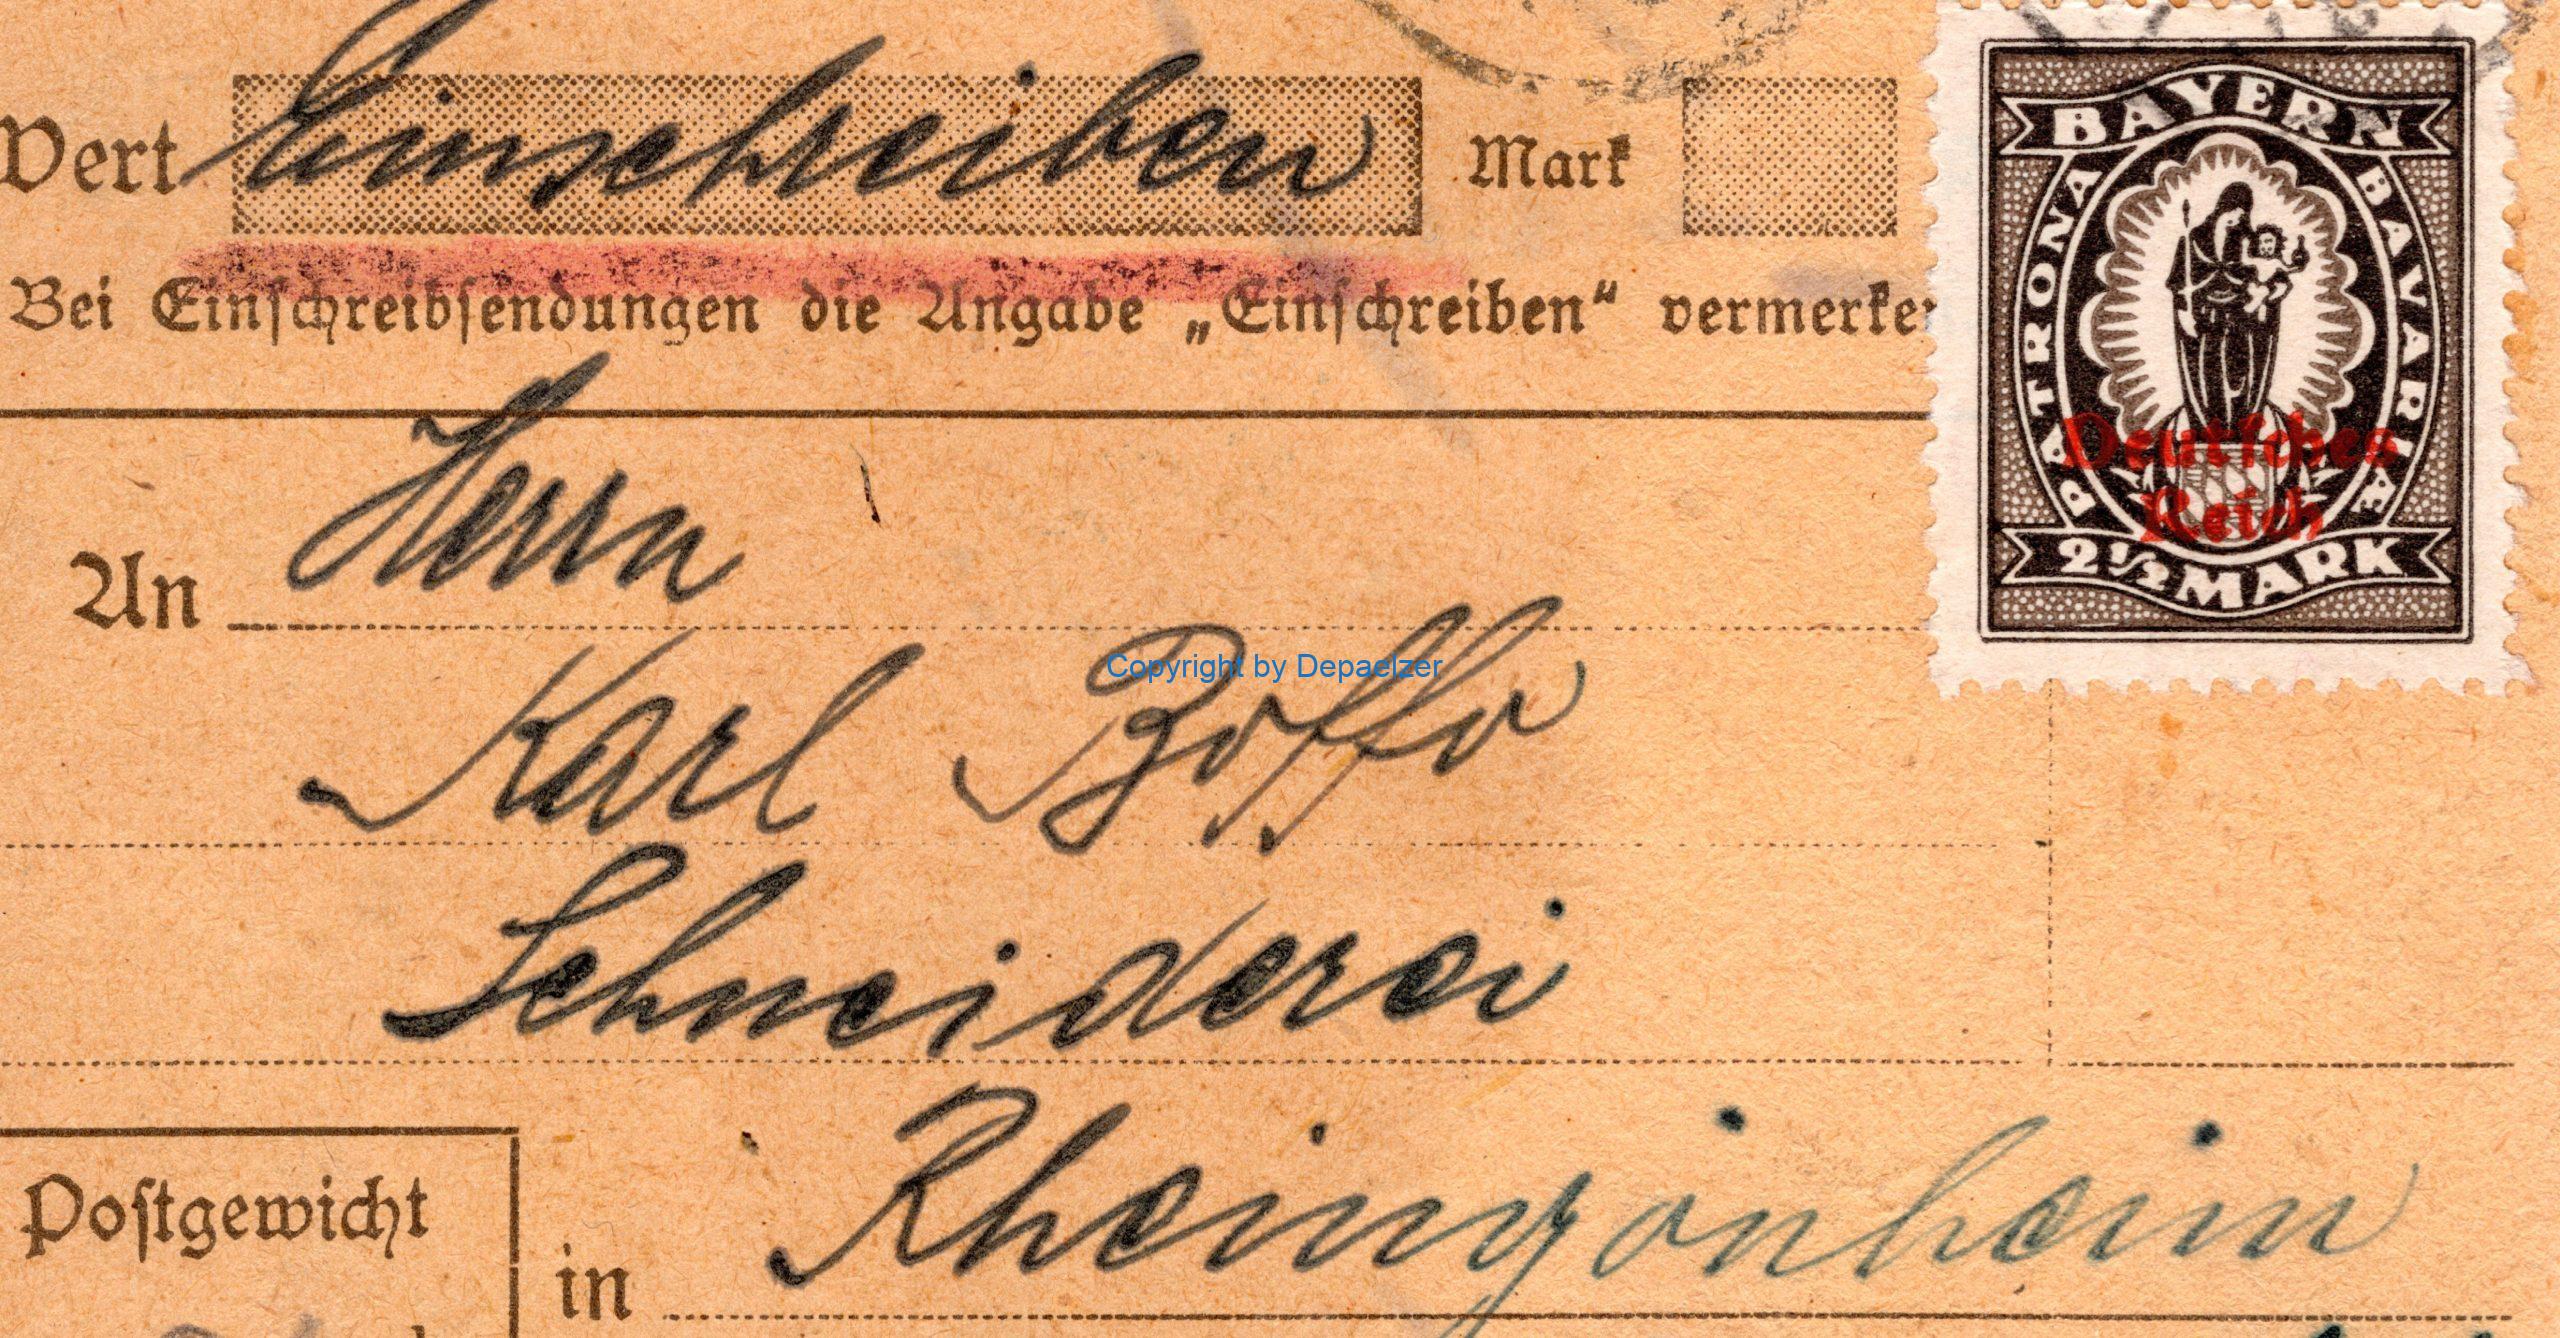 Wert Einschreiben Mark
Bei Einschreibsendungen die Angabe „Einschreiben“ vermerken
BAYERN
PATRONA BAVARIÆ
Deutsches
Reich
2½ MARK
An Herrn
Copyright by Depaelzer
Karl Boffo
Schneiderei
Postgewicht
in Rheingönheim